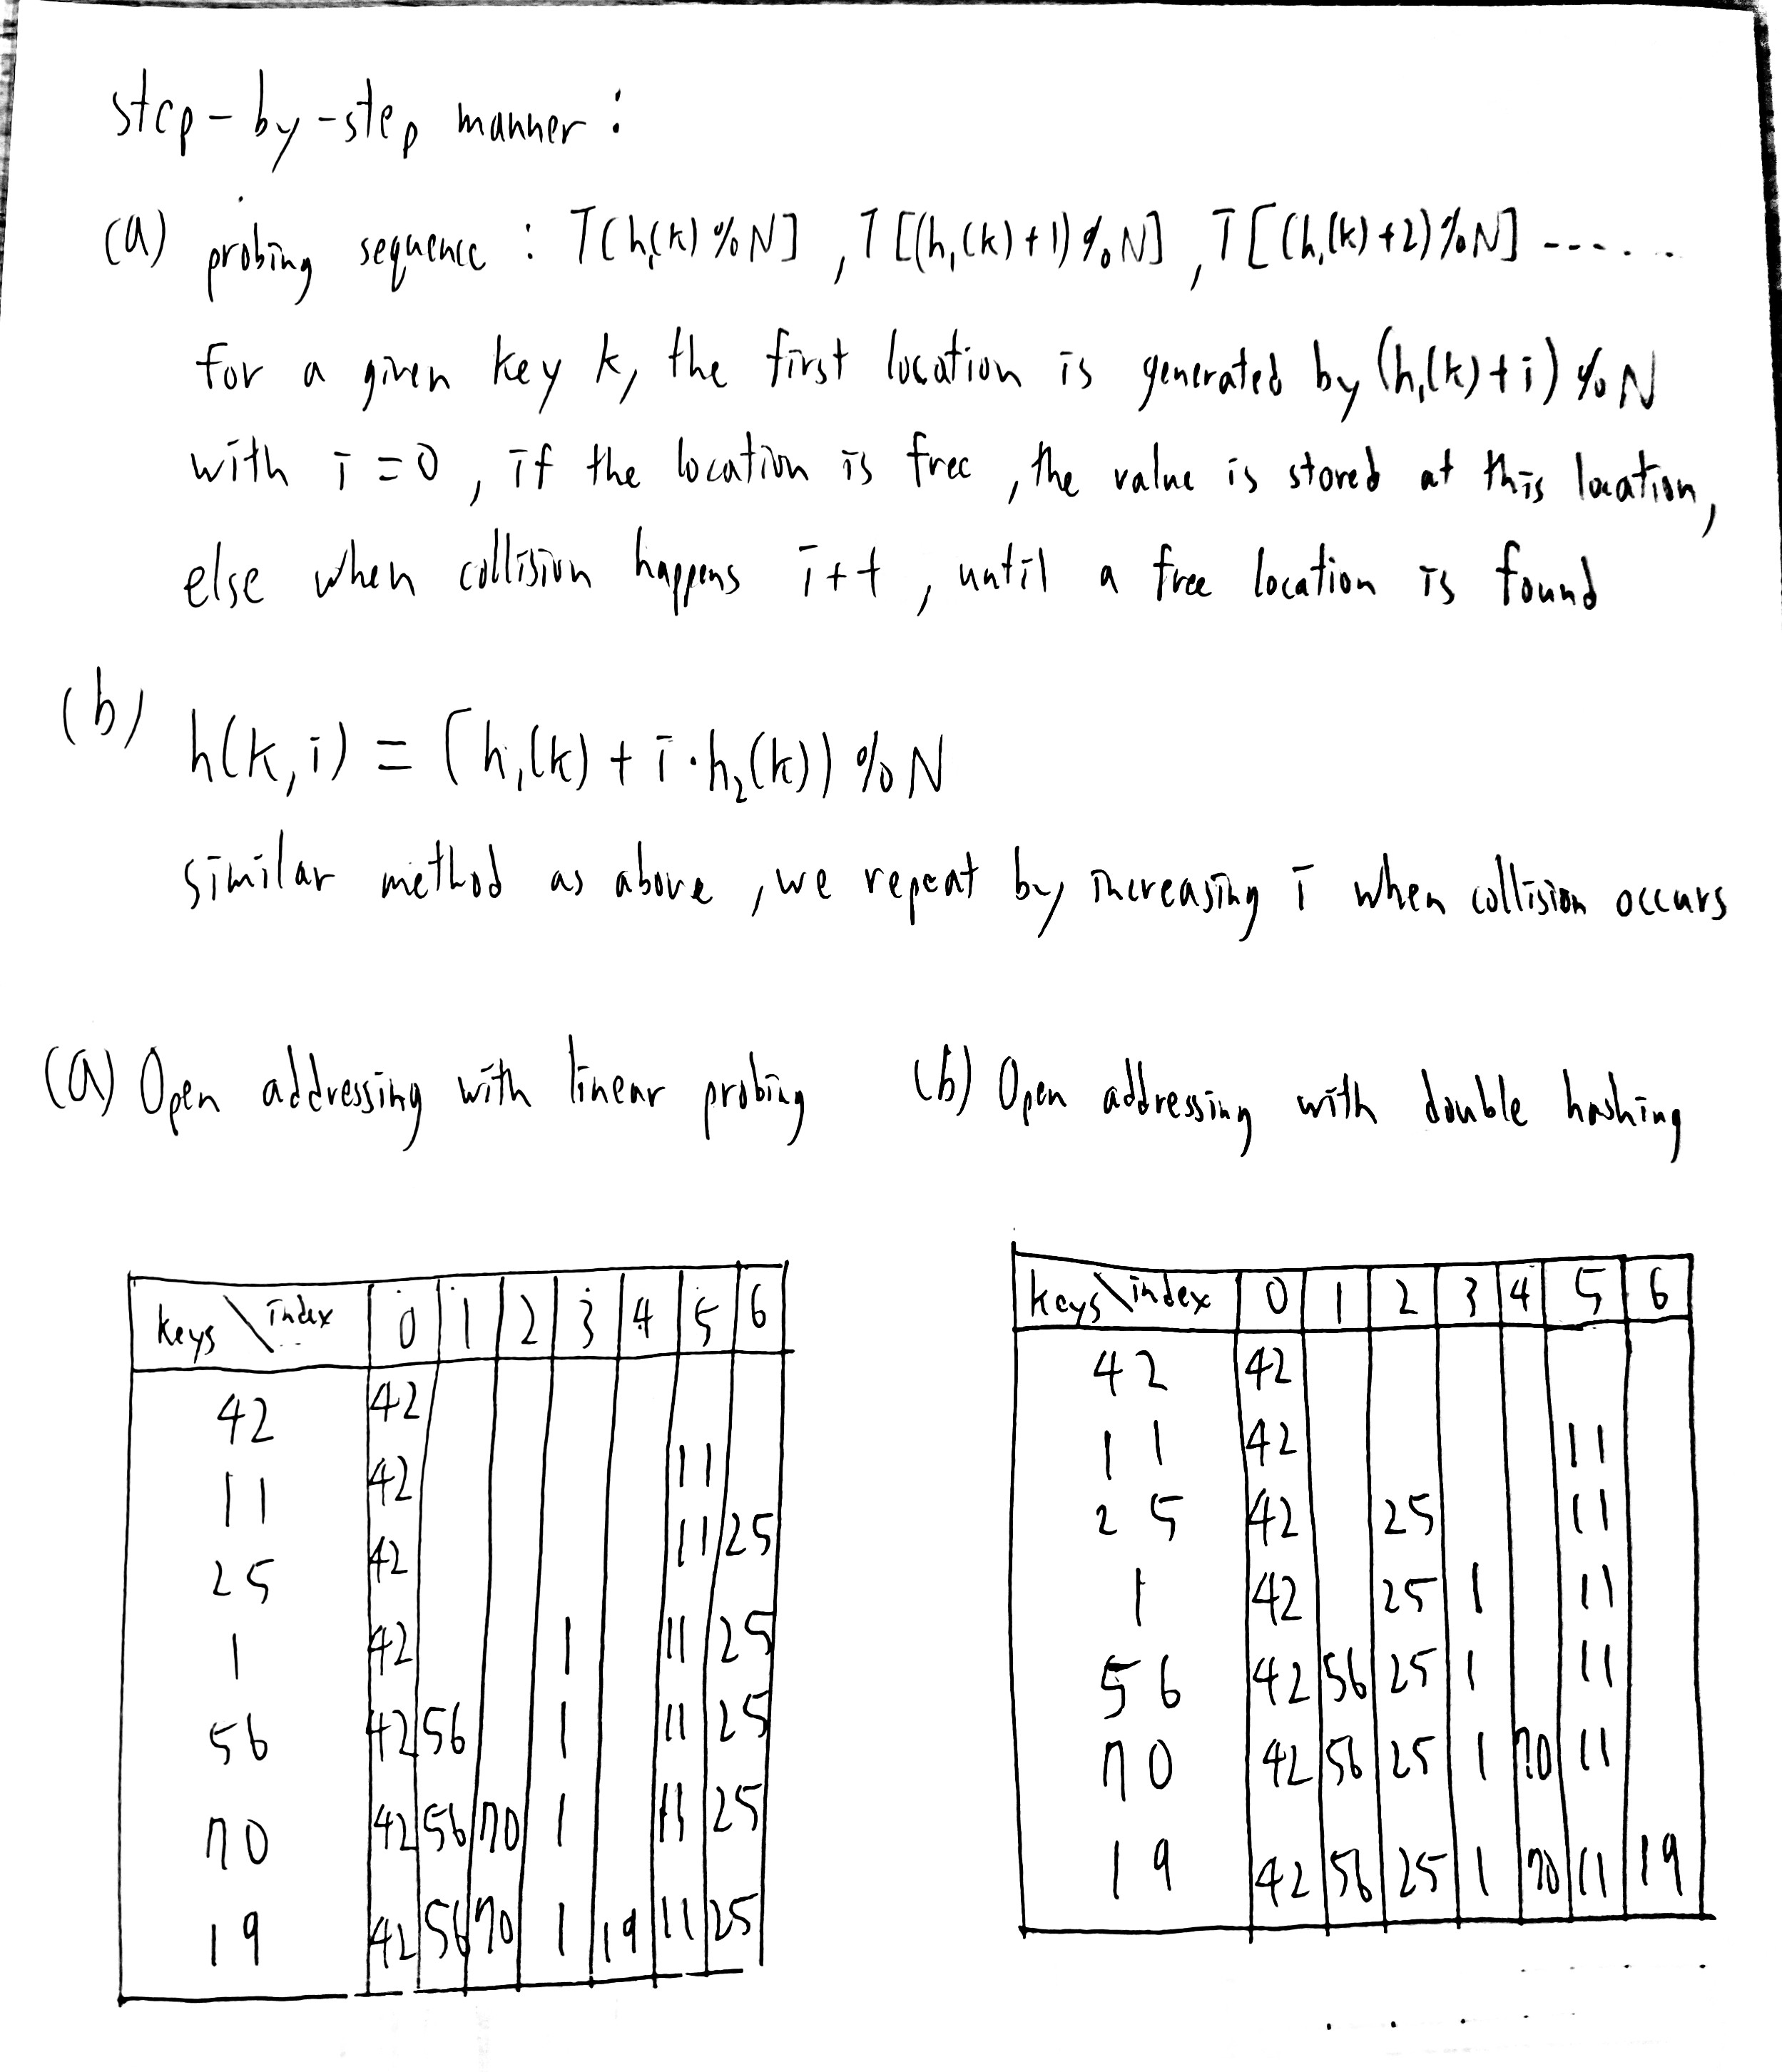 step-by-step manner :
(a) probing sequence : T[h₁(k) %N] , T[(h₁(k)+1)%N] , T[(h₁(k)+2)%N] ------
for a given key k, the first location is generated by (h₁(k)+i) %N
with i=0 , if the location is free , the value is stored at this location,
else when collision happens i++ , until a free location is found
(b) h(k,i) = (h₁(k) + i·h₂(k)) %N
similar method as above , we repeat by increasing i when collision occurs
(a) Open addressing with linear probing (b) Open addressing with double hashing
keys \ index 0 1 2 3 4 5 6
42 42
11 42 11
25 42 11 25
1 42 1 11 25
56 42 56 1 11 25
70 42 56 70 1 11 25
19 42 56 70 1 19 11 25
keys \ index 0 1 2 3 4 5 6
42 42
11 42 11
25 42 25 11
1 42 25 1 11
56 42 56 25 1 11
70 42 56 25 1 70 11
19 42 56 25 1 70 11 19